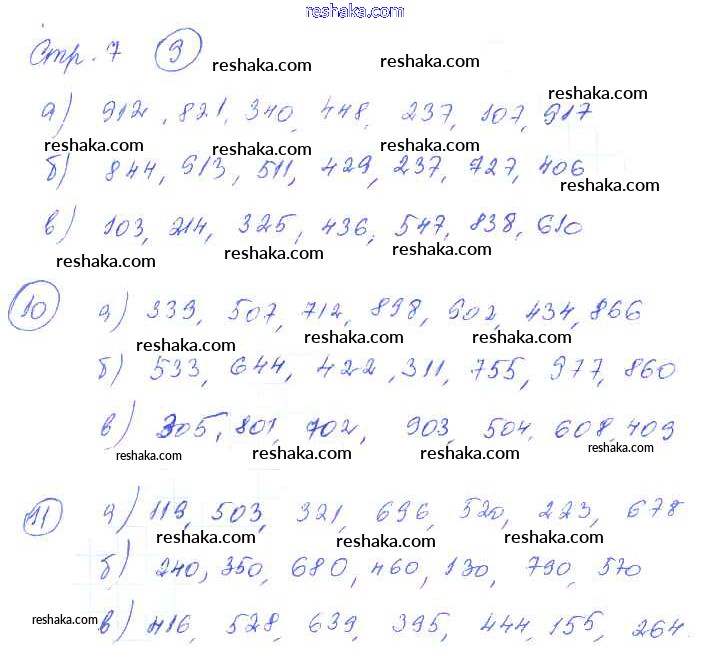 reshaka.com
Стр. 7 9
reshaka.com reshaka.com
а) 912, 821, 340, 448, 237, 107, 917
reshaka.com reshaka.com reshaka.com
б) 844, 913, 511, 429, 237, 727, 406
reshaka.com
в) 103, 214, 325, 436, 547, 838, 610
reshaka.com reshaka.com reshaka.com
10 а) 339, 507, 712, 898, 602, 434, 866
reshaka.com reshaka.com reshaka.com
б) 533, 644, 422, 311, 755, 977, 860
в) 305, 801, 702, 903, 504, 608, 409
reshaka.com reshaka.com reshaka.com
11 а) 119, 503, 321, 696, 520, 223, 678
reshaka.com reshaka.com reshaka.com
б) 240, 350, 680, 460, 130, 790, 570
reshaka.com
в) 416, 528, 639, 395, 444, 155, 264
reshaka.com reshaka.com reshaka.com